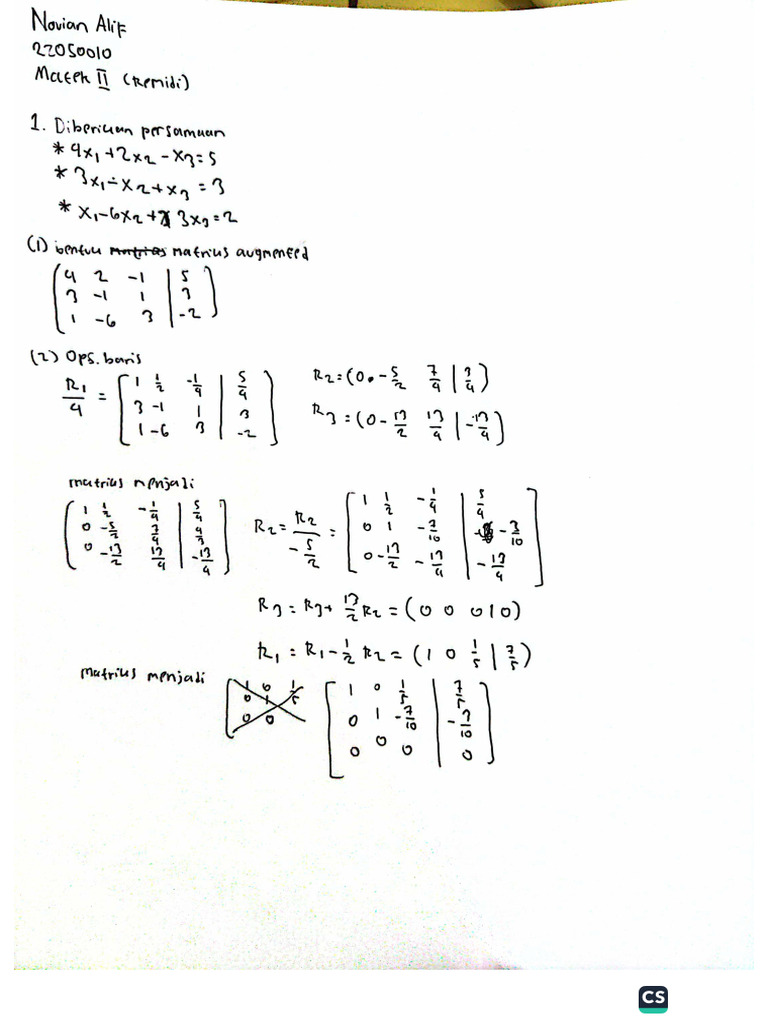 Novian Alif
22050010
Matek II (Remidi)
1. Diberikan persamaan
* 4x₁ + 2x₂ - x₃ = 5
* 3x₁ - x₂ + x₃ = 3
* x₁ - 6x₂ + 3x₃ = 2
(1) bentuk matriks augmented
4 2 -1 | 5
3 -1 1 | 3
1 -6 3 | -2
(2) Ops. baris
R₁/4 = [1 1/2 -1/4 | 5/4; 3 -1 1 | 3; 1 -6 3 | -2]
R₂ = (0 -5/2 7/4 | 3/4)
R₃ = (0 -13/2 13/4 | -13/4)
matriks menjadi
[1 1/2 -1/4 | 5/4; 0 -5/2 7/4 | 4/3; 0 -13/2 13/4 | -13/4]
R₂ = R₂/(-5/2) = [1 1/2 -1/4 | 5/4; 0 1 -7/10 | -3/10; 0 -13/2 -13/4 | -13/4]
R₃ = R₃ + 13/2 R₂ = (0 0 0 | 0)
R₁ = R₁ - 1/2 R₂ = (1 0 1/5 | 7/5)
matriks menjadi
[1 0 1/5 | 7/5; 0 1 -7/10 | -3/10; 0 0 0 | 0]
CS